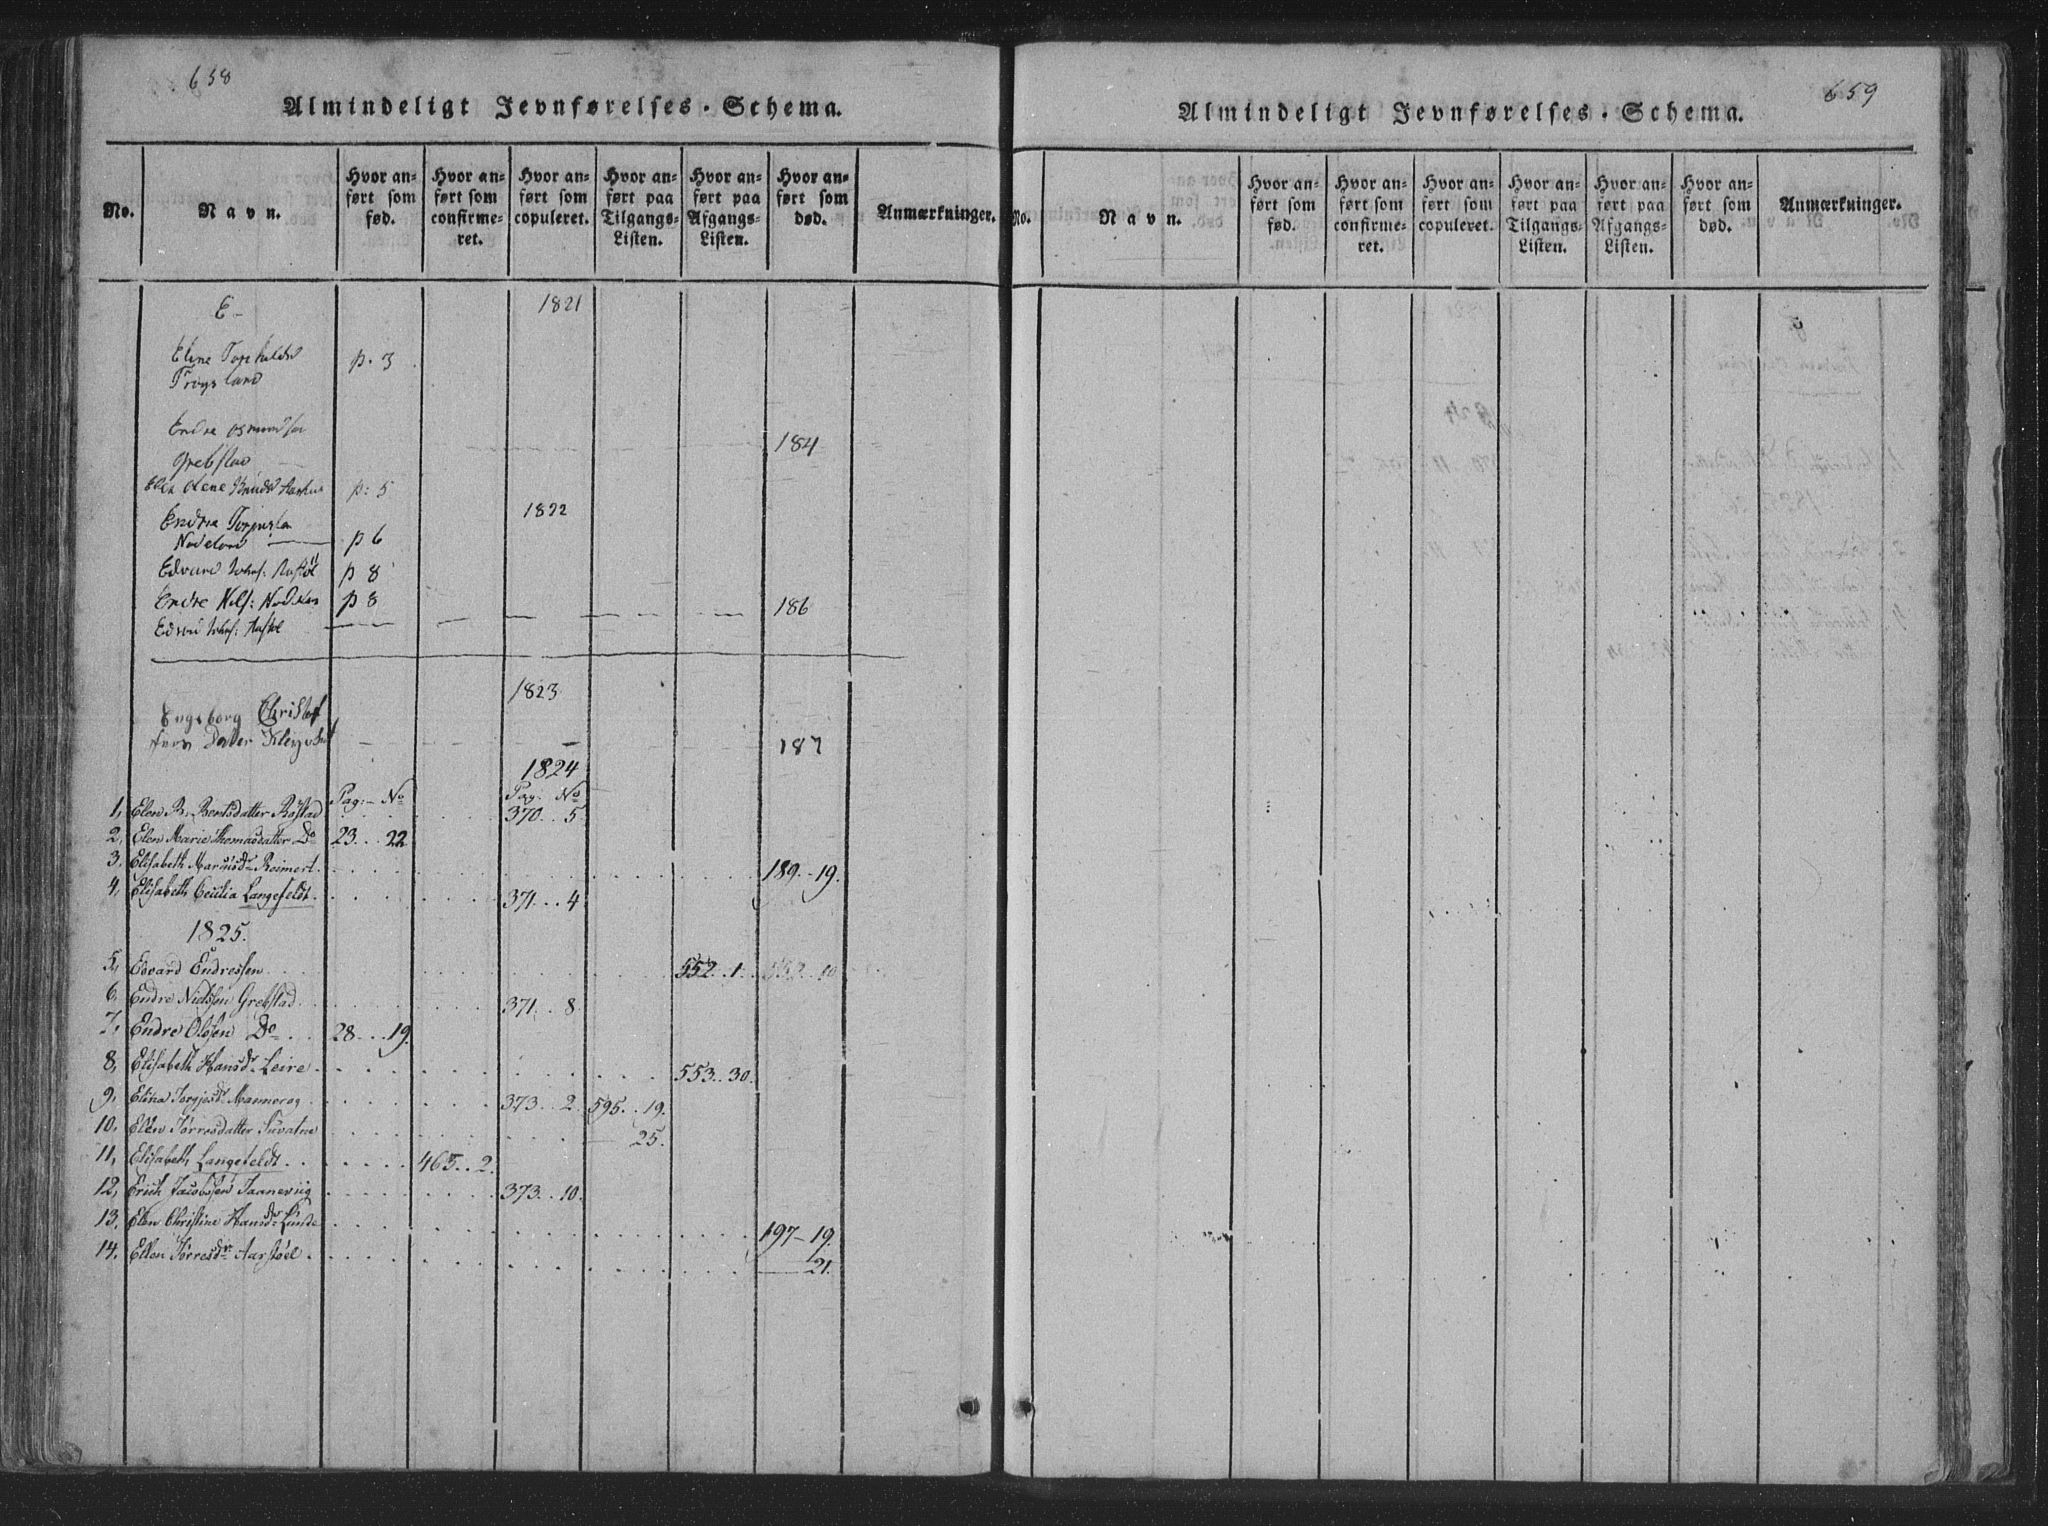 638
Almindeligt Jevnførelses-Schema.
No. Navn. Hvor anført som fød. Hvor anført som confirmeret. Hvor anført som copuleret. Hvor anført paa Tilgangs-Listen. Hvor anført paa Afgangs-Listen. Hvor anført som død. Anmærkninger.
E – 1821
Eline p. 3
Endre
Grebstad 184
Knudsd p: 5
1822
Endre
p 6
Edvard p 8
Endre p 8 186
1823
Engeborg Christof
187
1824
Pag: – No Pag: No
1, Elen B. Bentsdatter Røstad 370 .. 5
2, Elen Marie Thomasdatter Do 23 ... 22
3, Elisabeth Reimert 189 .. 19.
4, Elisabeth Cecilia Langefeldt 371 ... 4
1825.
5, Edvard Endressen 552 .. 1. 552 .. 10
6, Endre Nielssen Grebstad 371 .. 8.
7, Endre Olssen Do 28 ... 19.
8, Elisabeth Hansdr Leire 553 .. 30.
9, Elina 373 .. 2. 595 .. 19.
10, Elen Tørresdatter 25.
11, Elisabeth Langefeldt 465 .. 2.
12, Erich Jacobssen 373 .. 10.
13, Elen Christine Hansdr Lunde 197 – 19.
14, Ellen Tørresdr Aarstøel – 21.
659
Almindeligt Jevnførelses-Schema.
No. Navn. Hvor anført som fød. Hvor anført som confirmeret. Hvor anført som copuleret. Hvor anført paa Tilgangs-Listen. Hvor anført paa Afgangs-Listen. Hvor anført som død. Anmærkninger.